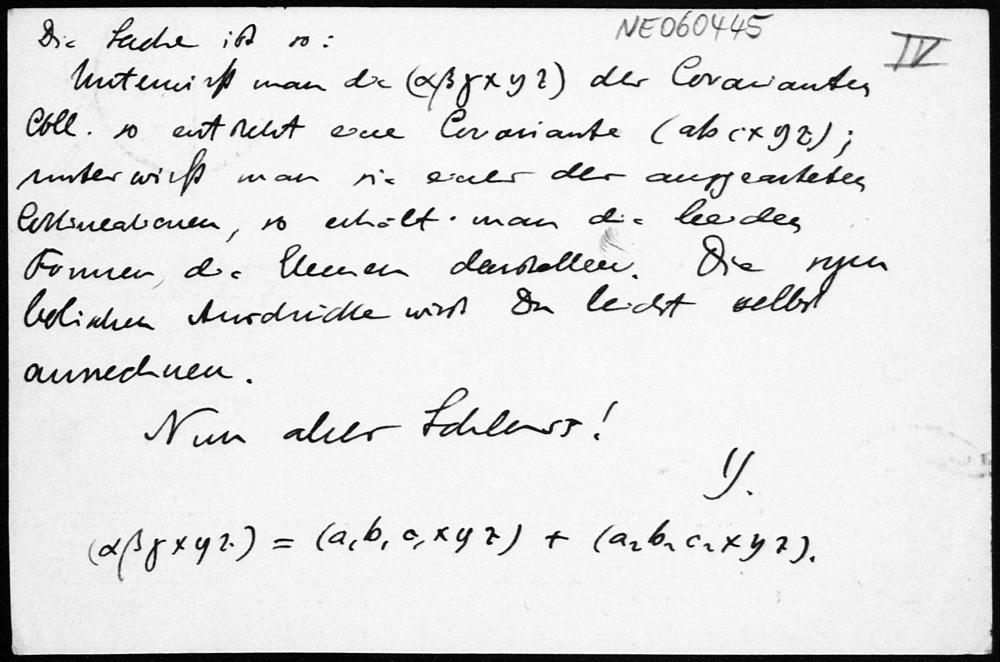 NE060445
IV
Die Sache ist so:
Unterwirft man die (αβγxyz) der Covarianten
Coll. so entsteht eine Covariante (abcxyz);
unterwirft man sie einer der ausgearteten
Collineationen, so erhält man die beiden
Formen, die Clemen darstellen. Die sym
bolischen Ausdrücke wirst Du leicht selbst
ausrechnen.
Nun aber Schluss!
(αβγxyz) = (a₁b₁c₁xyz) + (a₂b₂c₂xyz).